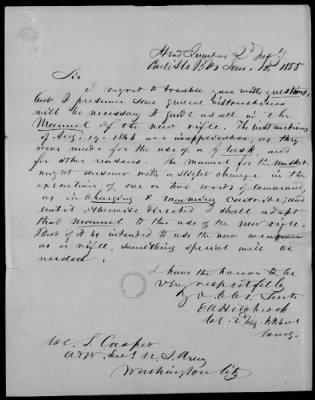 Head Quarters 2d Inf'y
Carlisle Bks Jan. 12, 1855
Sir
I regret to trouble you with questions,
but I presume some general instructions
will be necessary to guide us all in the
Manual of the new rifle. The instructions
of Aug. 1st are inapplicable, as they
were made for the use of a task and
for other reasons. The manual for the Musket
might answer with a slight change in the
execution of one or two words of command,
as in Charging & ramming Cartridge, and
until otherwise directed I shall adapt
that manual to the use of the new rifle.
But if it be intended to use the new weapon
as a rifle, something special will be
needed.
I have the honor to be
very respectfully
Yr. Obt. Servt
E A Hitchcock
Col. 2d Inf.
Comg.
Col. S. Cooper
Adj. Gen. U. S. Army
Washington City